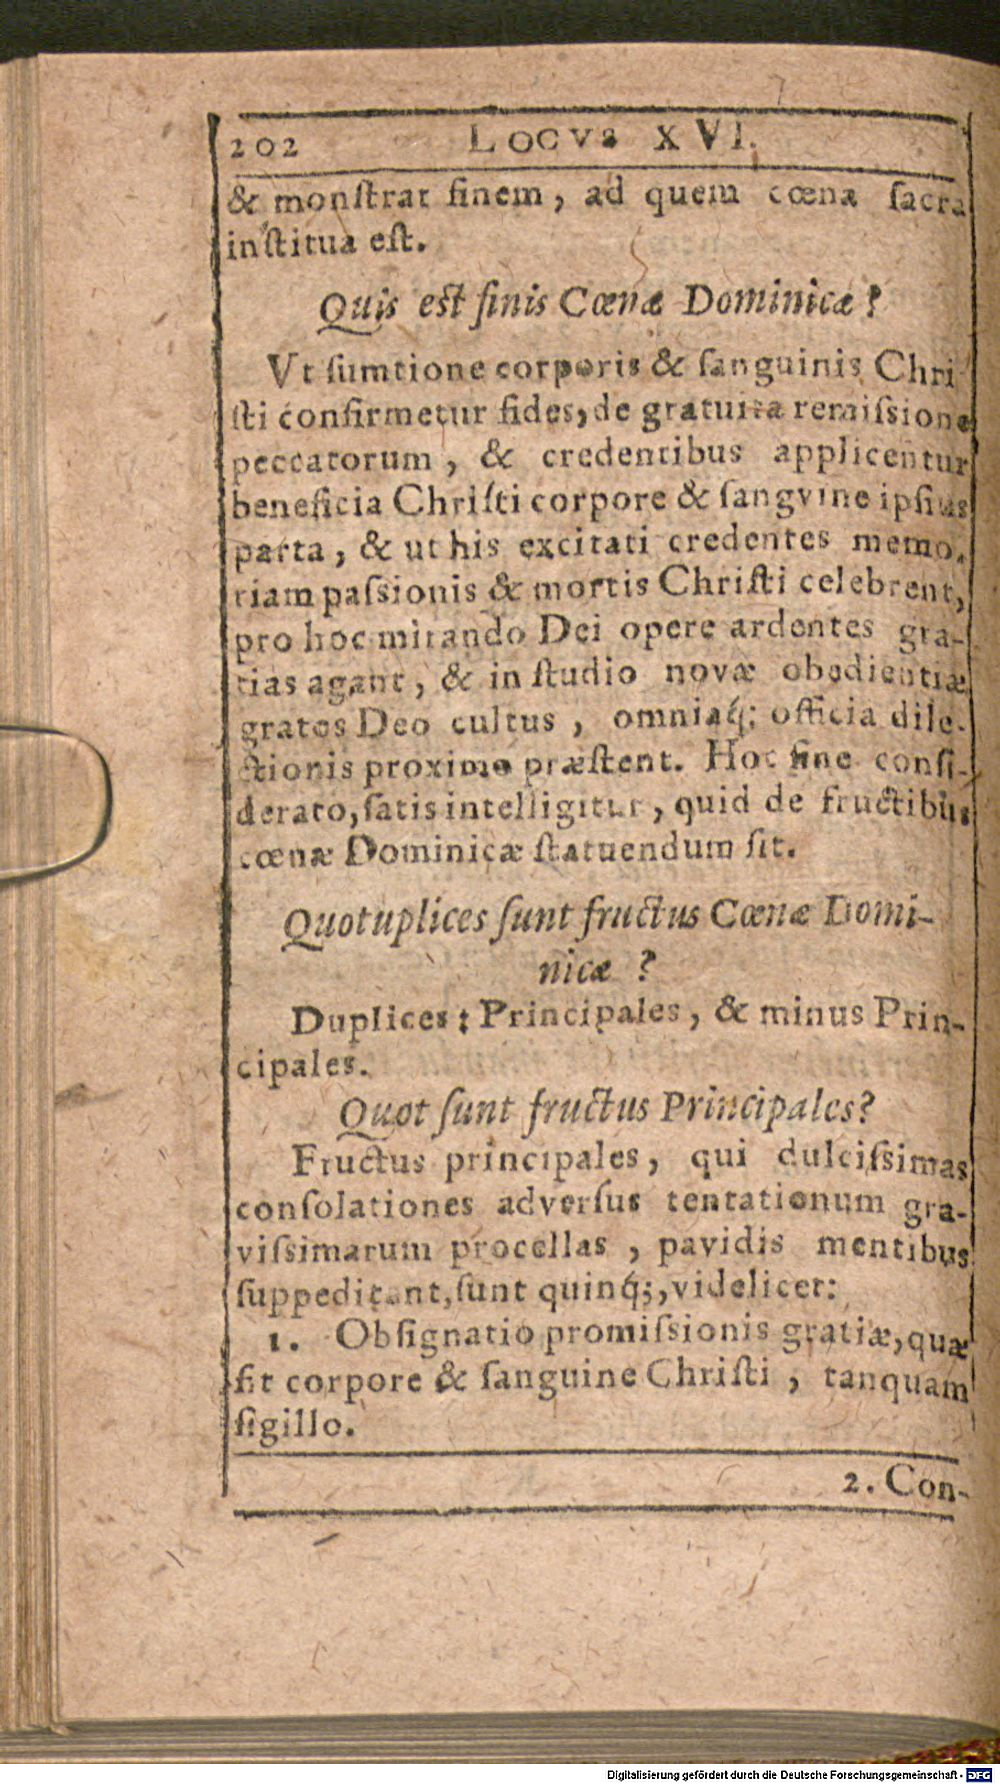 202 Locvs XVI.
& monſtrat finem, ad quem cœna ſacra
inſtitua eſt.
Quis eſt finis Cœnæ Dominicæ?
Vt ſumtione corporis & ſanguinis Chri
ſti confirmetur fides, de gratuita remiſsione
peccatorum, & credentibus applicentur
beneficia Chriſti corpore & ſangvine ipſius
parta, & ut his excitati credentes memo-
riam paſsionis & mortis Chriſti celebrent,
pro hoc mirando Dei opere ardentes gra-
tias agant, & in ſtudio novæ obedientiæ
gratos Deo cultus, omniaq́; officia dile-
ctionis proximo præſtent. Hoc fine conſi-
derato, ſatis intelligitur, quid de fructibus
cœnæ Dominicæ ſtatuendum ſit.
Quotuplices ſunt fructus Cœnæ Domi-
nicæ ?
Duplices: Principales, & minus Prin-
cipales.
Quot ſunt fructus Principales?
Fructus principales, qui dulciſsimas
conſolationes adverſus tentationum gra-
viſsimarum procellas, pavidis mentibus
ſuppeditant, ſunt quinq́;, videlicet:
1. Obſignatio promiſsionis gratiæ, quæ
fit corpore & ſanguine Chriſti, tanquam
ſigillo.
2. Con-
Digitalisierung gefördert durch die Deutsche Forschungsgemeinschaft - DFG